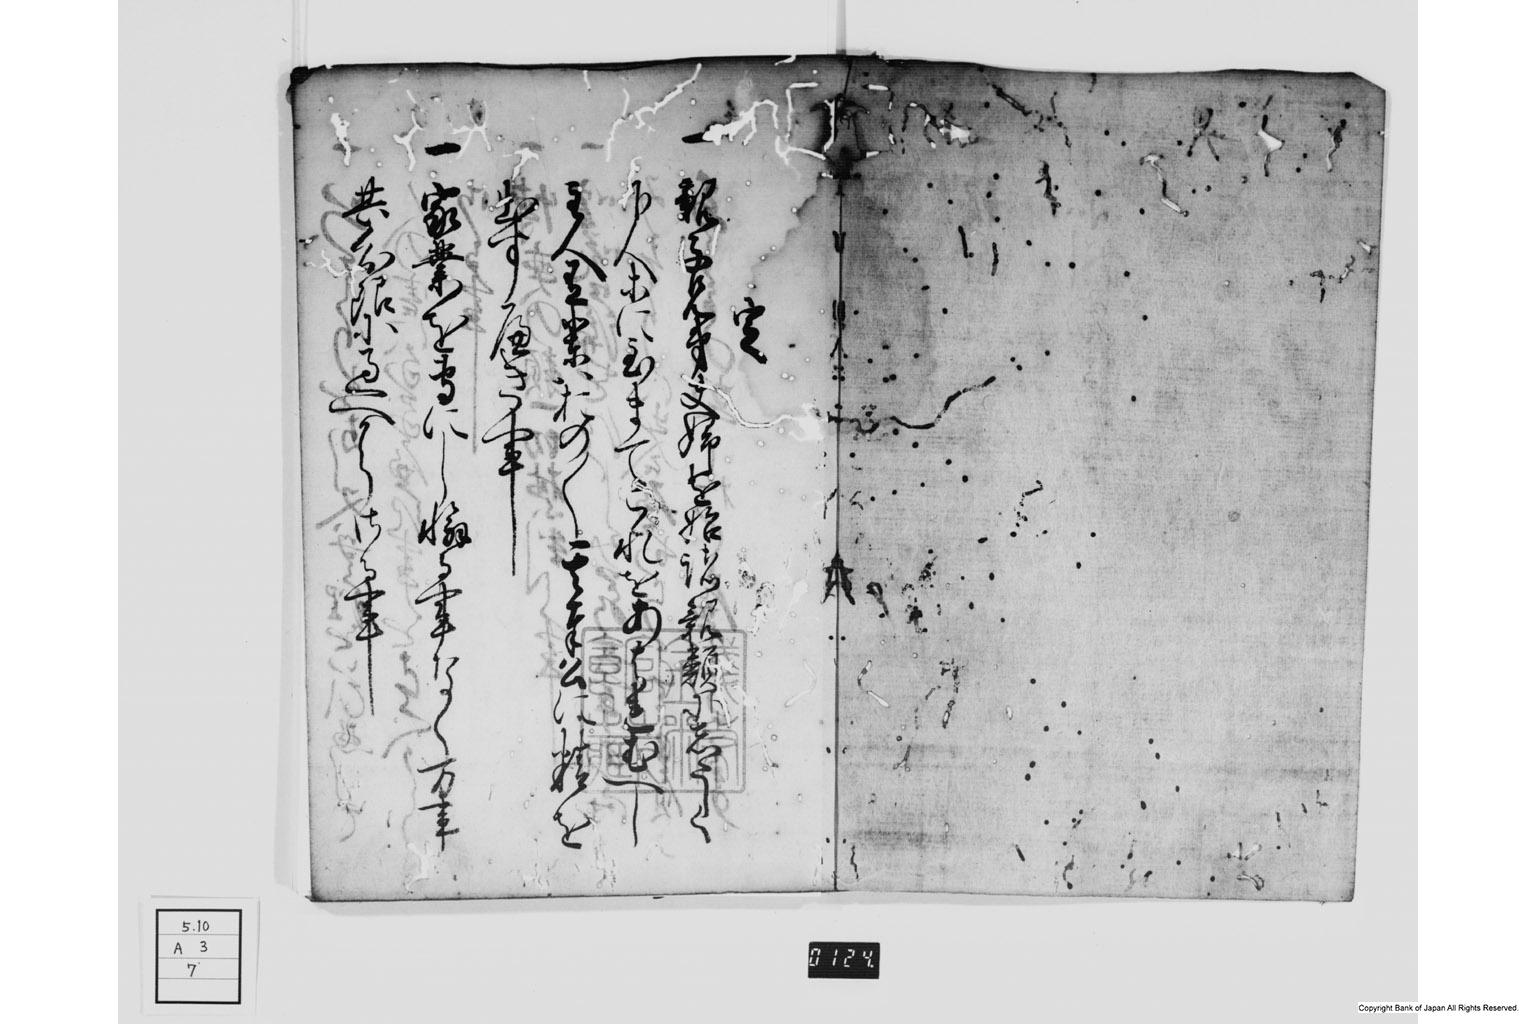 定
一 親子兄弟夫婦を始諸親類にしたしく
下人等に至まてこれをあはれむへし
主人有輩はおの〳〵其奉公に精を
出すへき事
一 家業を専にし懈る事なく万事
其分限に過へからさる事
5.10
A 3
7
0124
Copyright Bank of Japan All Rights Reserved.